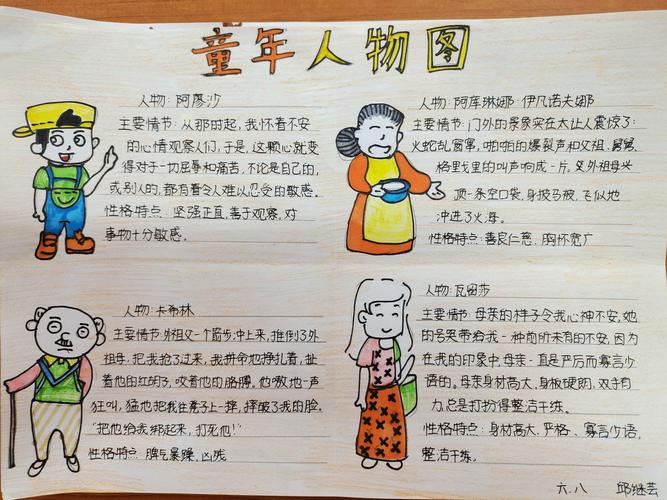 童年人物图
人物：阿廖沙
主要情节：从那时起，我怀着不安
的心情观察人们，于是，这颗心就变
得对于一切屈辱和痛苦，不论是自己的，
或别人的，都有着令人难以忍受的敏感。
性格特点：坚强正直，善于观察，对
事物十分敏感。
人物：阿库琳娜·伊凡诺夫娜
主要情节：门外的景象实在太让人震惊了：
火蛇乱窜，啪啪的爆裂声和父祖、舅舅、
格里戈里的叫声响成一片。外祖母头
顶一条空口袋，身披马被，飞似地
冲进了火海。
性格特点：善良仁慈、胸怀宽广
人物：卡希林
主要情节：外祖父一个箭步冲上来，推倒了外
祖母，把我抢了过来，我拼命地挣扎着，扯
着他的红胡子，咬着他的胳膊，他嗷地一声
狂叫，猛地把我往凳子上一摔，摔破了我的脸。
"把他给我绑起来，打死他！"
性格特点：脾气暴躁，凶残
人物：瓦留莎
主要情节：母亲的样子令我心神不安，她
的号哭带给我一种前所未有的不安，因为
在我的印象中，母亲一直是严厉而寡言少
语的。母亲身材高大，身板硬朗，双手有
力，总是打扮得整洁干练。
性格特点：身材高大、严格、寡言少语，
整洁干练。
六.八 邱继芸